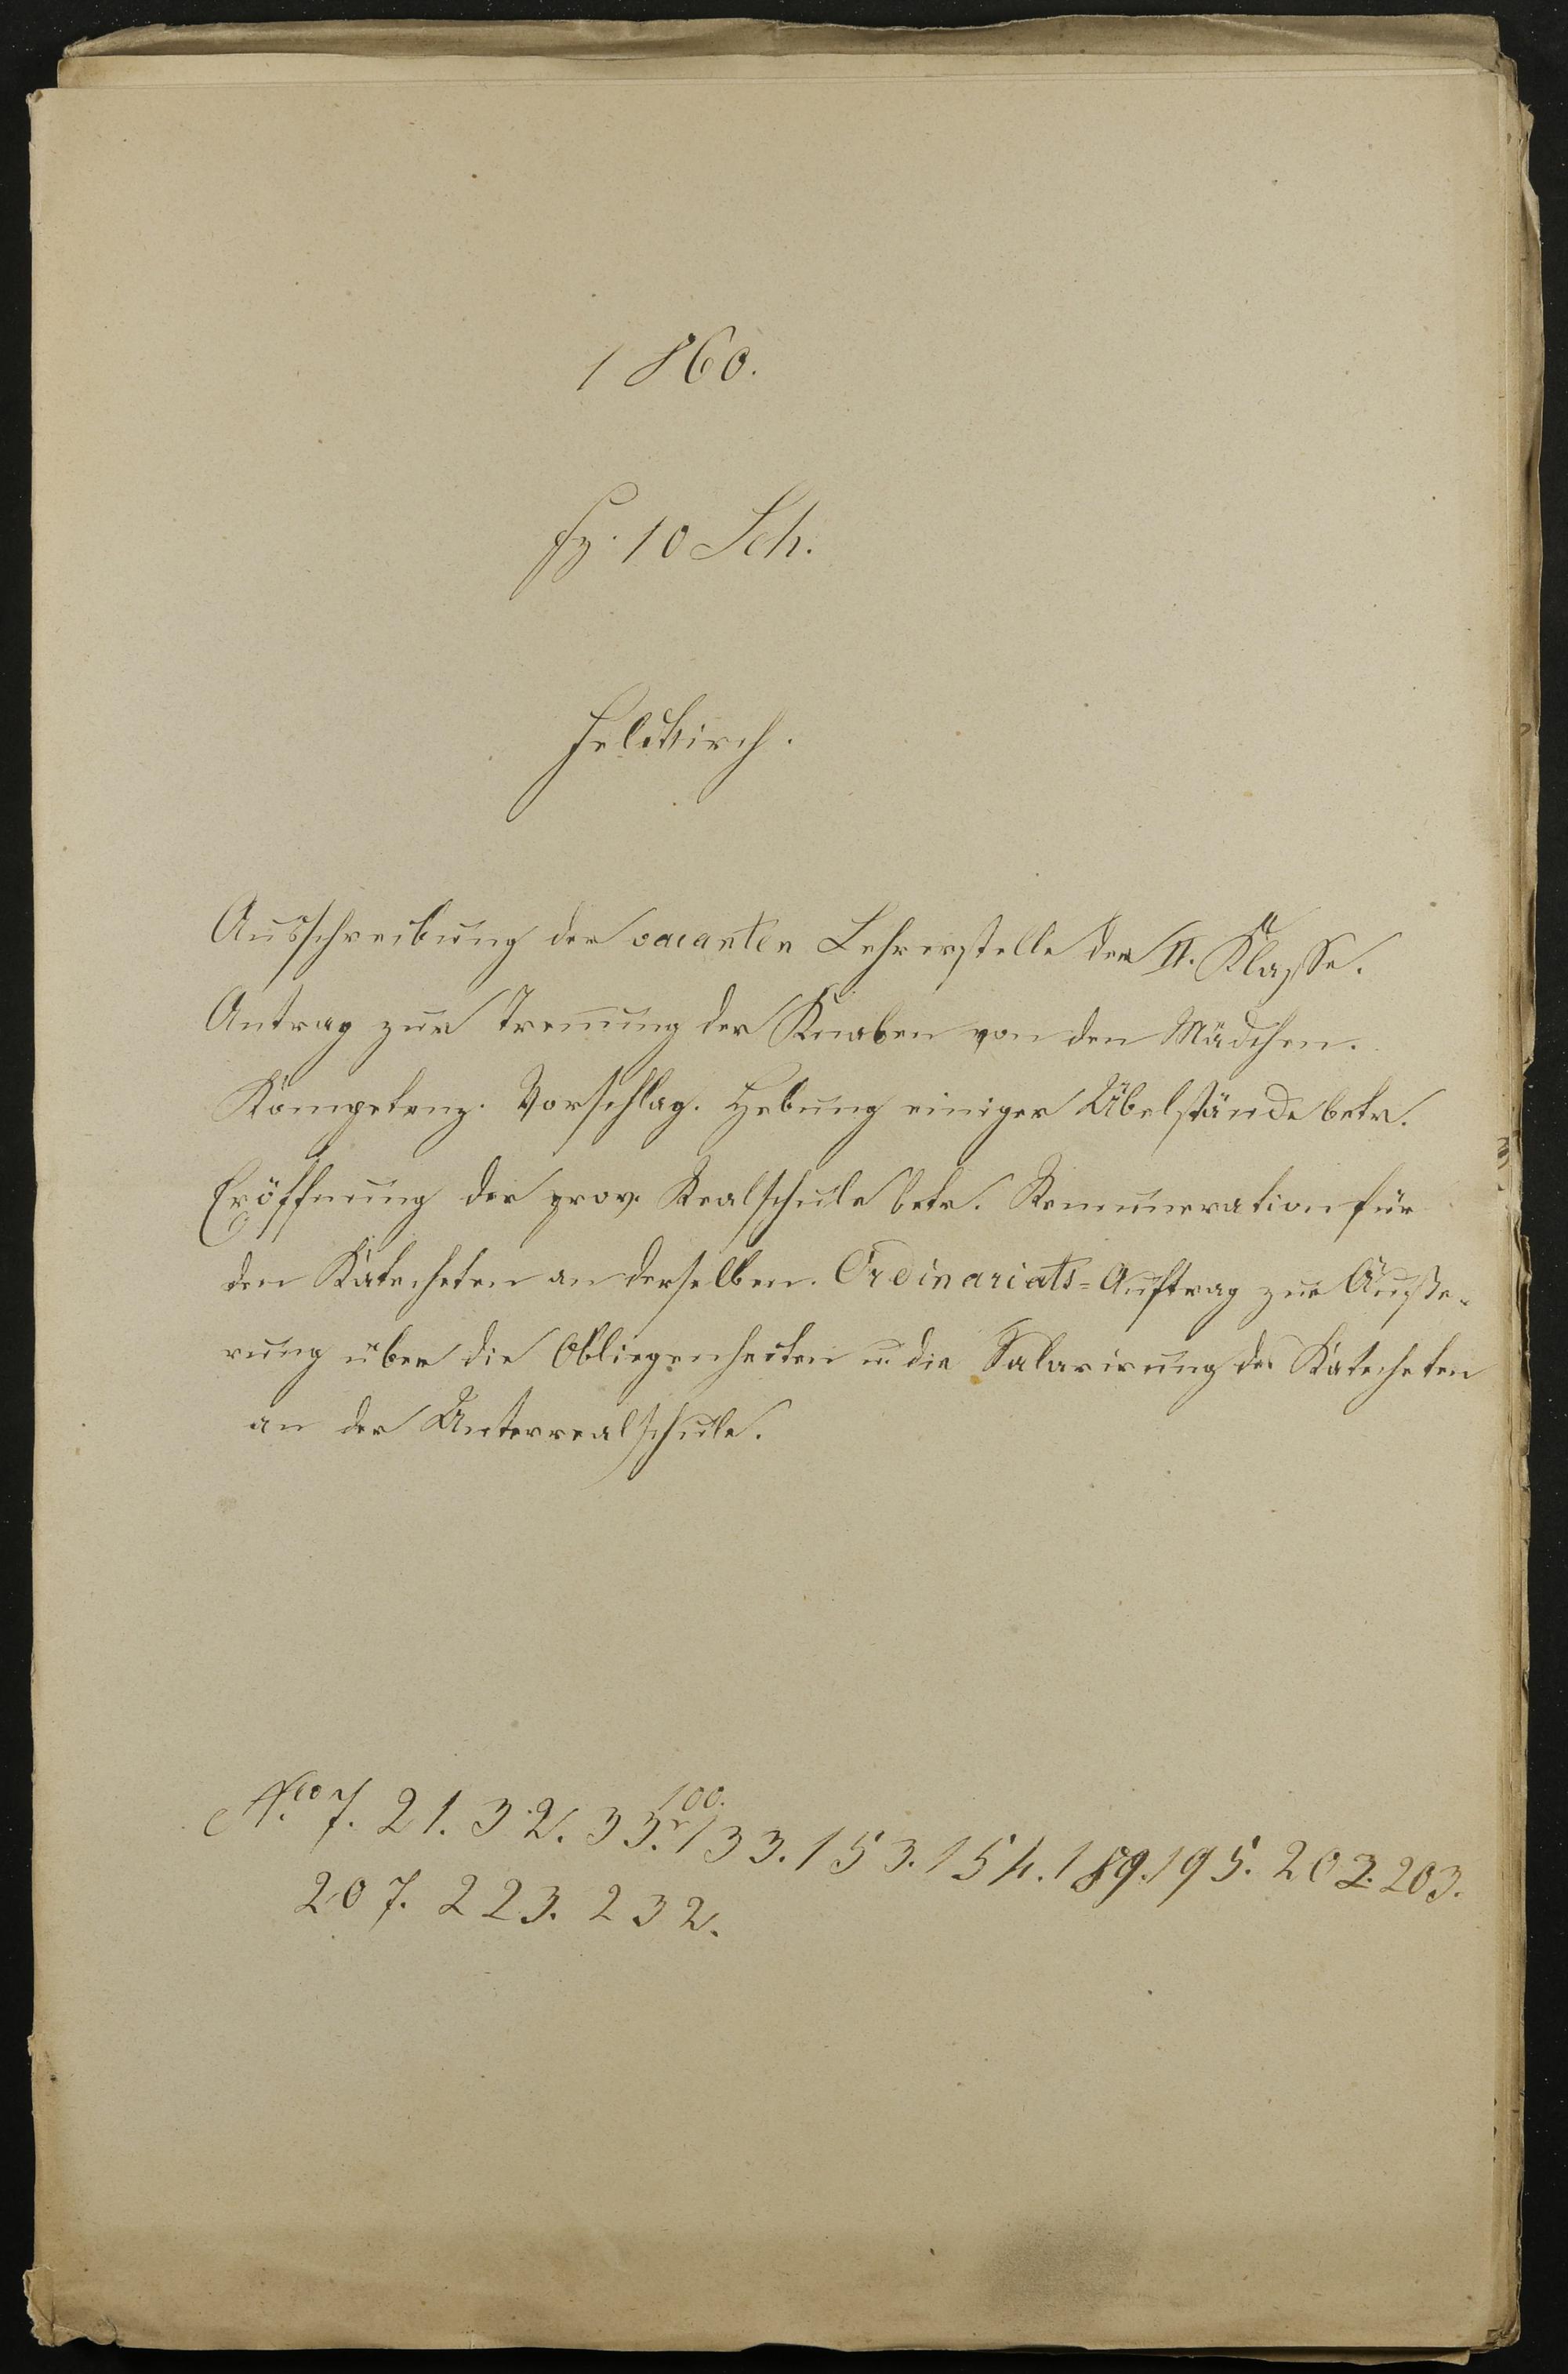 1860.
Fz. 10 Sch.
Feldkirch.
Ausschreibung der vacanten Lehrerstelle der II. Klasse.
Antrag zur Trennung der Knaben von den Mädchen.
Kompetenz. Vorschlag. Hebung einiger Übelstände betr.
Eröffnung der prov. Realschule betr. Remuneration für
den Katecheten an derselben. Ordinariats=Auftrag zur Äuße-
rung über die Obliegenheiten u. die Salarirung des Katecheten
an der Unterrealschule.
Nro 7. 21. 32. 33. 100. 133. 153. 154. 189. 195. 202. 203.
207. 223. 232.